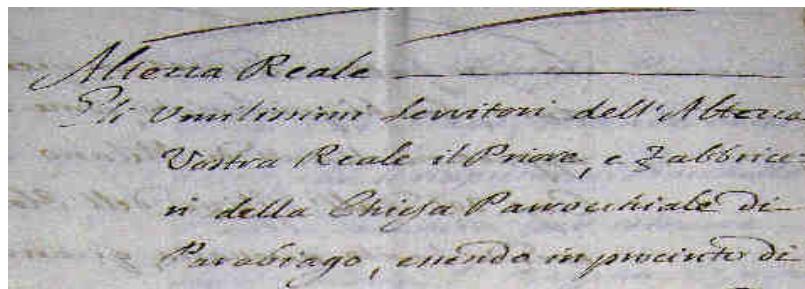 Altezza Reale
Gli Umilissimi Servitori dell'Altezza
Vostra Reale il Priore, e Fabbrice-
ri della Chiesa Parrocchiale di
Parabiago, essendo in procinto di